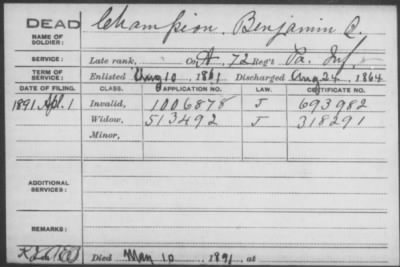 DEAD
NAME OF SOLDIER: Champion, Benjamin Q.
SERVICE: Late rank, Co. A, 72 Reg't Pa. Inf.
TERM OF SERVICE: Enlisted Aug 10, 1861 Discharged Aug 24, 1864
DATE OF FILING. CLASS. APPLICATION NO. LAW. CERTIFICATE NO.
1891 Apl. 1 Invalid, 1006878 J 693982
Widow, 513492 J 318291
Minor,
ADDITIONAL SERVICES:
REMARKS:
Died May 10, 1891, at